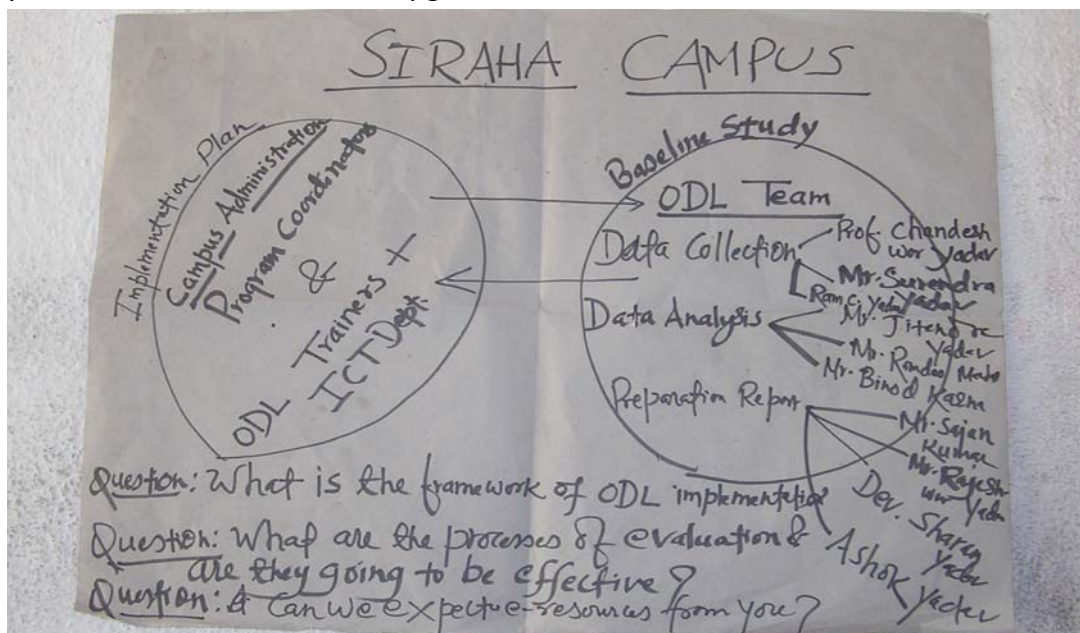 SIRAHA CAMPUS
Implementation Plan
Campus Administration
Program Coordinators
&
ODL Trainers +
ICT Dept.
Baseline Study
ODL Team
Data Collection
Prof. Chandesh
wor Yadav
Mr. Surendra
Yadav
Ram c. Yadav
Data Analysis
Mr. Jitendra
Yadav
Mr. Binod Karna
Preparation Report
Mr. Sajan
Kumar
Mr. Rajesh
Yadav
Dev. Sharan
Yadav
Ashok Yadav
Question: What is the framework of ODL implementation
Question: What are the processes of evaluation &
are they going to be effective?
Question: Can we expect e-resources from you?